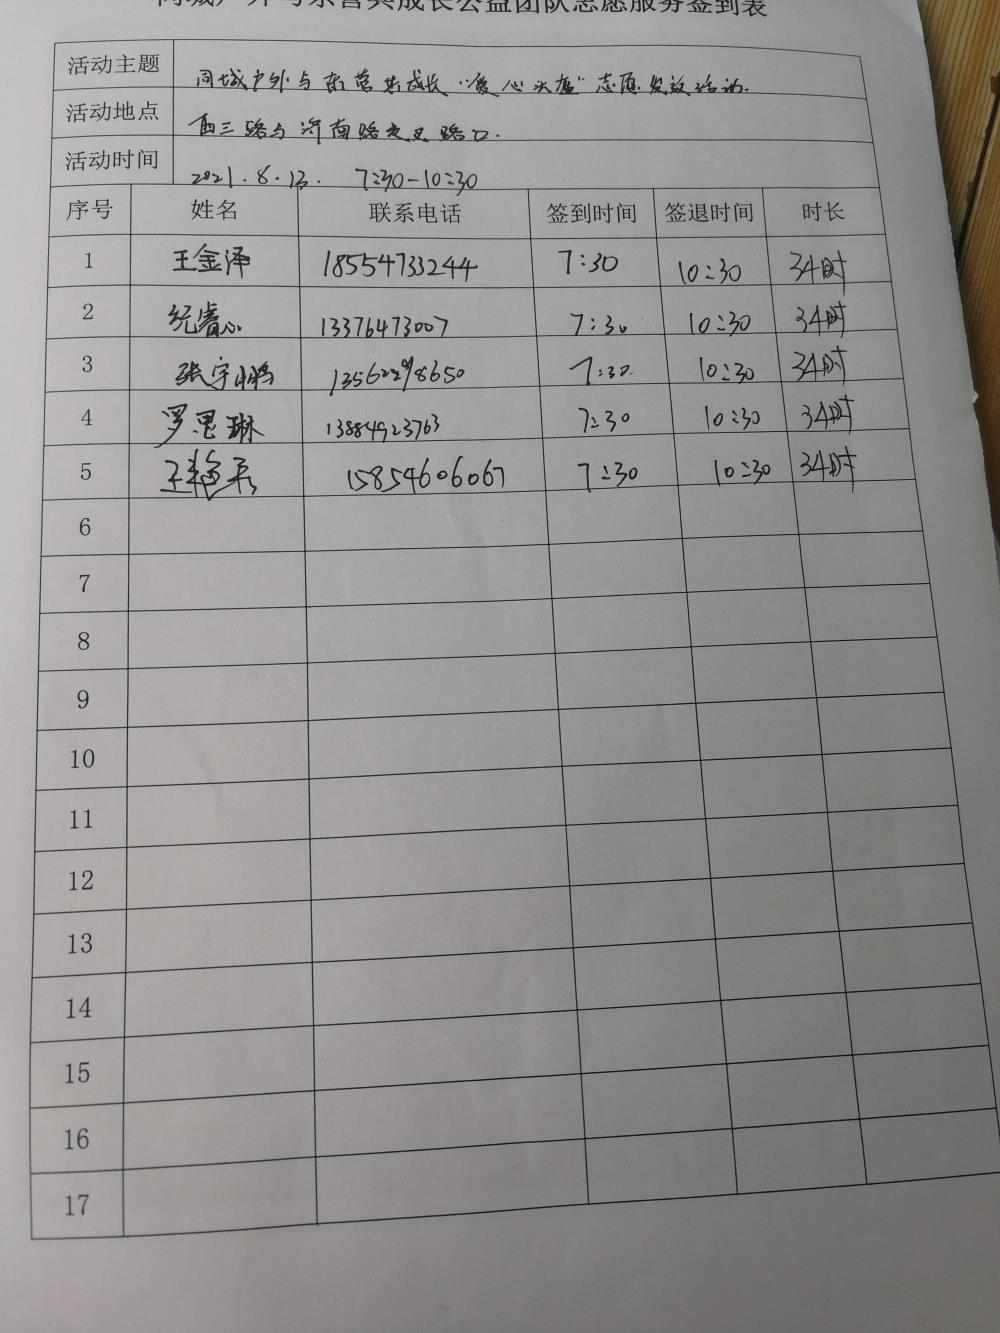 同城户外与东营共成长公益团队志愿服务签到表
活动主题 同城户外与东营共成长“爱心头盔”志愿发放活动.
活动地点 西三路与济南路交叉路口.
活动时间 2021.8.13. 7:30-10:30
序号 姓名 联系电话 签到时间 签退时间 时长
1 王金泽 18554733244 7:30 10:30 3小时
2 睿心 13376473007 7:30 10:30 3小时
3 张宇鹏 13562298650 7:30. 10:30 3小时
4 罗思琳 13884923763 7:30 10:30 3小时
5 王 15854606067 7:30 10:30 3小时
6
7
8
9
10
11
12
13
14
15
16
17